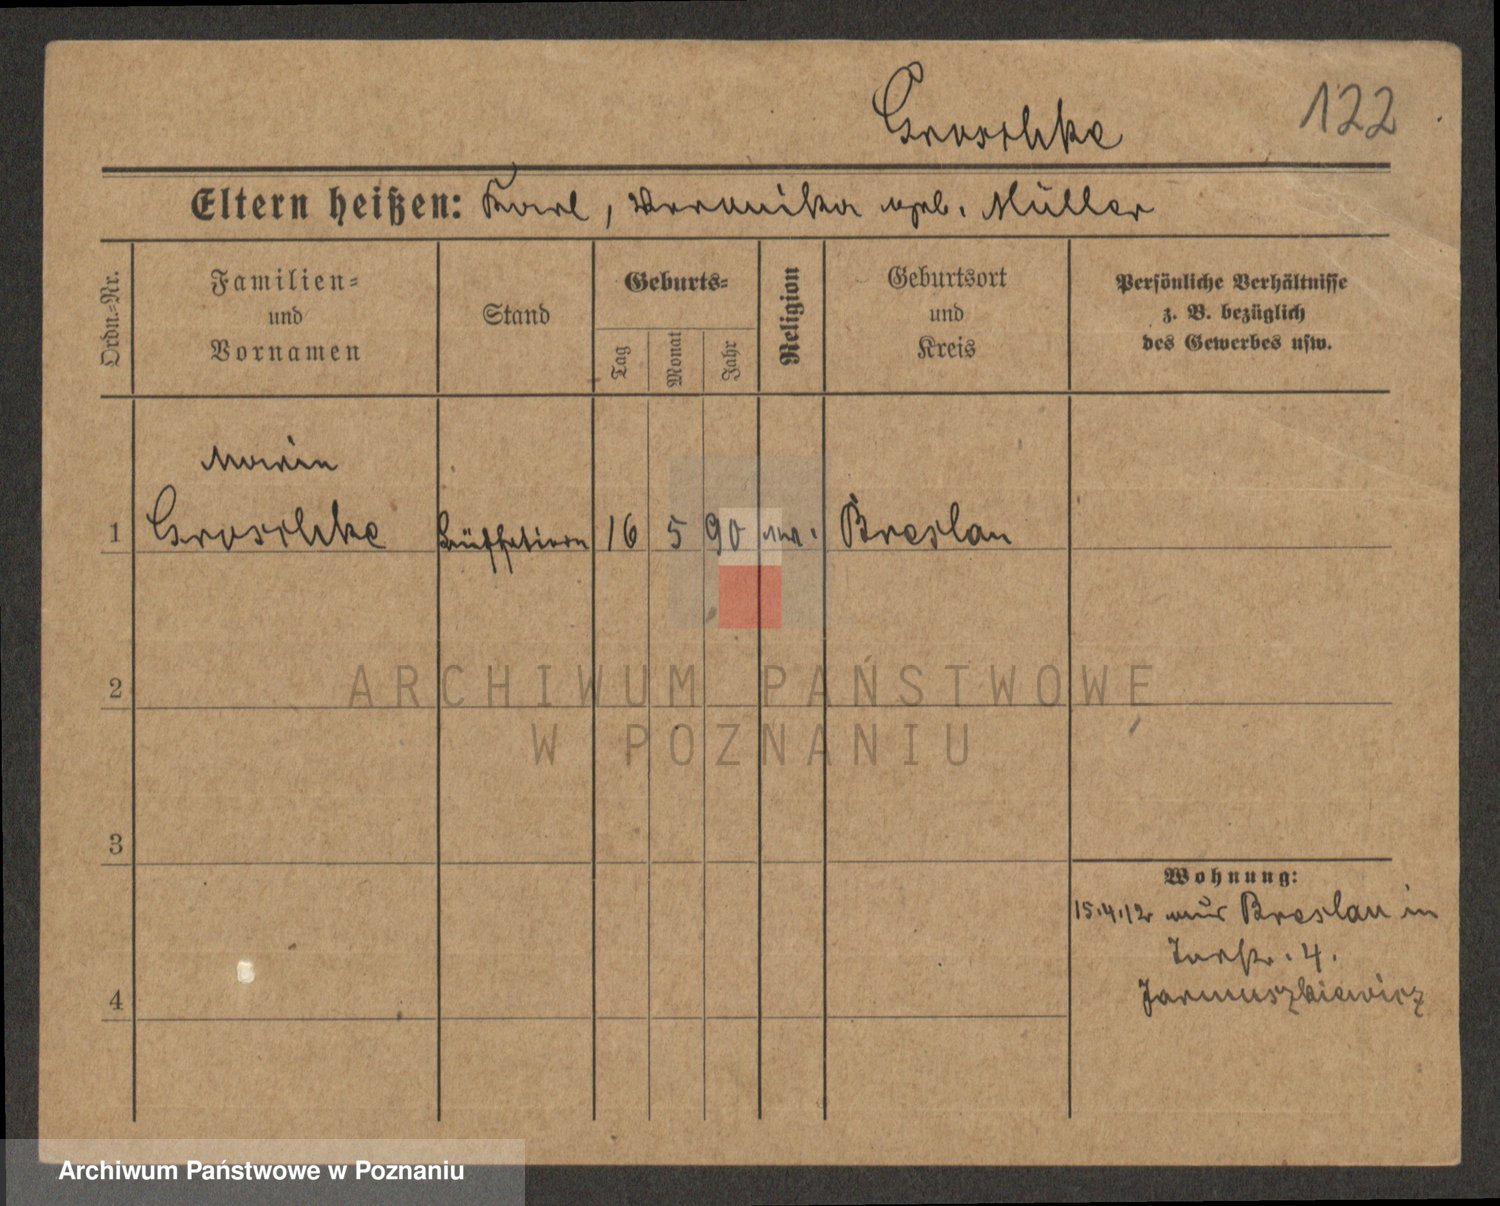 Groschke
122
Eltern heißen: Karl, Veronika geb. Müller
Ordn.-Nr.
Familien-
und
Vornamen
Stand
Geburts-
Tag
Monat
Jahr
Religion
Geburtsort
und
Kreis
Persönliche Verhältnisse
z. B. bezüglich
des Gewerbes usw.
Maria
1 Groschke 16 5 90 Breslau
2
3
4
Wohnung:
15.4.12 aus Breslau in
4.
Jarmuszkiewicz
ARCHIWUM PAŃSTWOWE
W POZNANIU
Archiwum Państwowe w Poznaniu